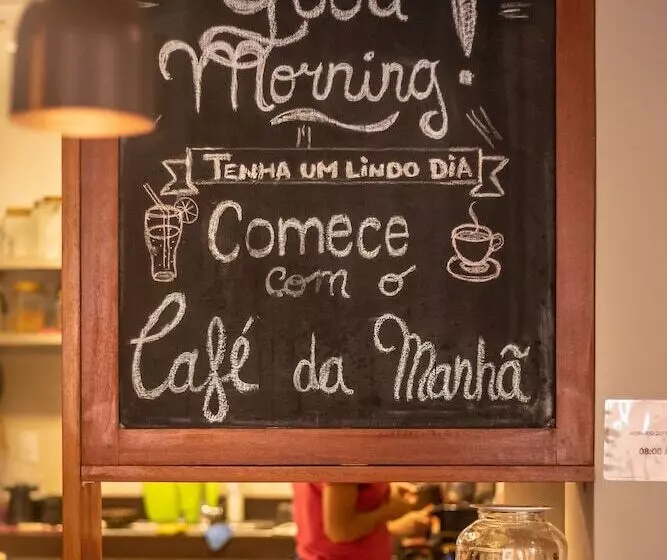 Good
Morning!
TENHA UM LINDO DIA
Comece
com o
Café da Manhã
08:00